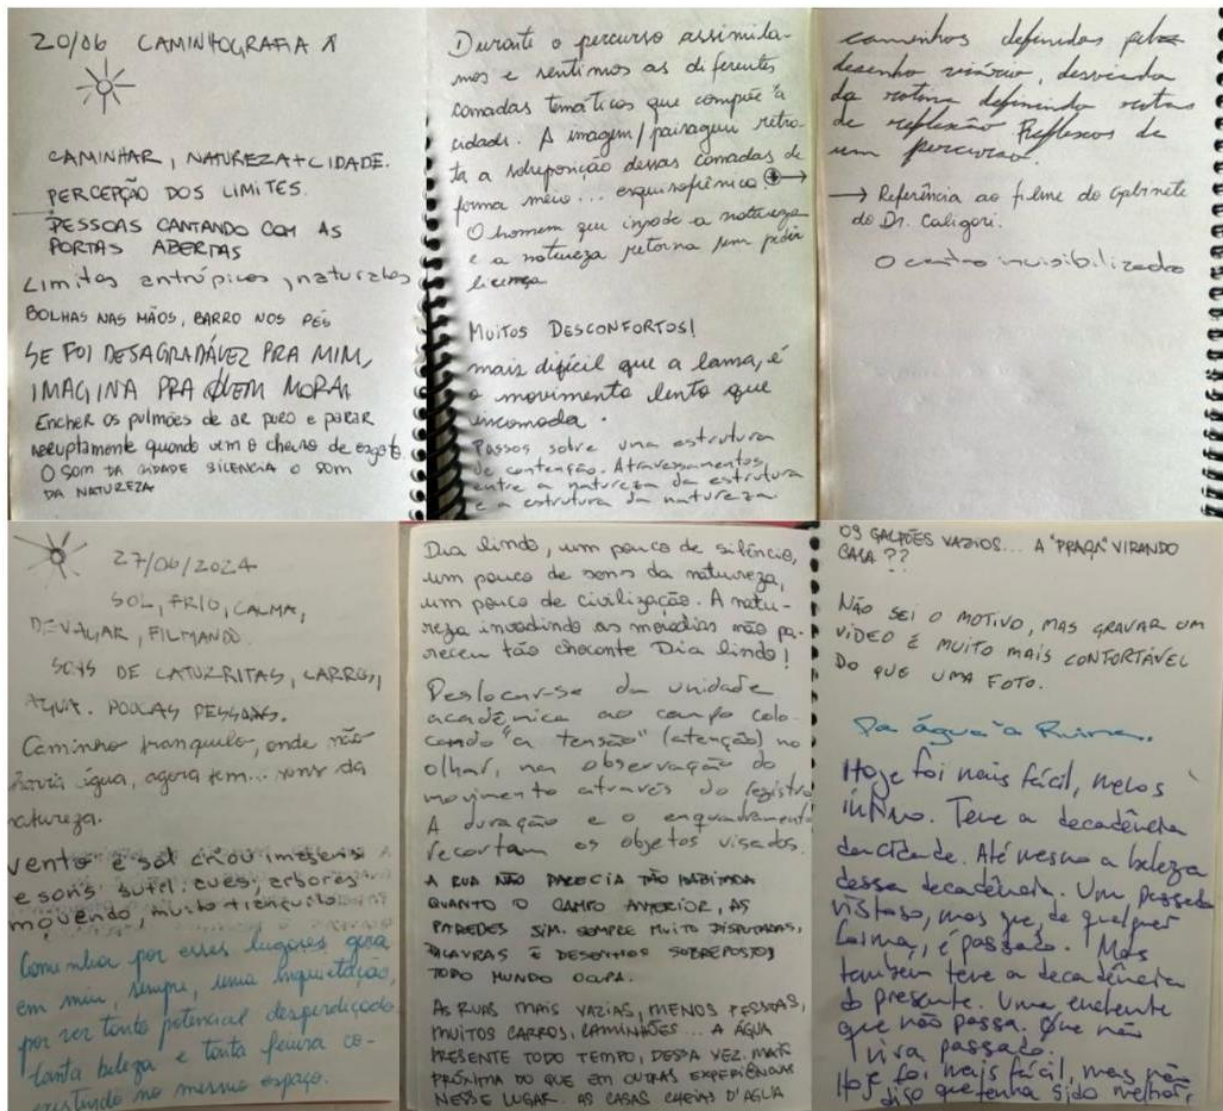 20/06 CAMINHOGRAFIA
CAMINHAR, NATUREZA+CIDADE.
PERCEPÇÃO DOS LIMITES.
PESSOAS CANTANDO COM AS
PORTAS ABERTAS
Limites antrópicos, naturales
BOLHAS NAS MÃOS, BARRO NOS PÉS
SE FOI DESAGRADÁVEL PRA MIM,
IMAGINA PRA QUEM MORA
ENCHER OS PULMÕES DE AR PURO E PARAR
ABRUPTAMENTE quando vem o cheiro de esgoto.
O SOM DA CIDADE SILENCIA O SOM
DA NATUREZA
Durante o percurso assimila-
mos e sentimos as diferentes
camadas temáticas que compõe a
cidade. A imagem/paisagem retra-
ta a sobreposição dessas camadas de
forma meio... esquisofrênica. →
O homem que invade a natureza
e a natureza retorna sem pedir
licença
MUITOS DESCONFORTOS!
mais difícil que a lama, é
o movimento lento que
incomoda.
Passos sobre una estrutura
de contenção. Atravessamentos
entre a natureza da estrutura
e a estrutura da natureza.
caminhos definidos pelo
desenho viário, desviando
da rotina definindo rotas
de reflexão Reflexos de
um percurso.
→ Referência ao filme do Gabinete
do Dr. Caligari.
O centro invisibilizado
27/06/2024
SOL, FRIO, CALMA,
DEVAGAR, FILMANDO.
SONS DE CATURRITAS, CARROS,
ÁGUA. POUCAS PESSOAS.
Caminho tranquilo, onde não
havia água, agora tem... sons da
natureza.
vento e sol criou imagens
e sons sutil: aves, arbores
movendo, muito tranquilo
Caminhar por esses lugares gera
em mim, sempre, uma inquietação,
por ver tanto potencial desperdiçado
tanta beleza e tanta feiura co-
existindo no mesmo espaço.
Dia lindo, um pouco de silêncio,
um pouco de sons da natureza,
um pouco de civilização. A natu-
reza invadindo as moradias não pa-
receu tão chocante Dia lindo!
Deslocar-se da unidade
acadêmica ao campo colo-
cando "a tensão" (atenção) no
olhar, na observação do
movimento através do registro
A duração e o enquadramento
recortam os objetos visados.
A RUA NÃO PARECIA TÃO HABITADA
QUANTO O CAMPO ANTERIOR, AS
PAREDES SIM. SEMPRE MUITO DISPUTADAS,
PALAVRAS E DESENHOS SOBREPOSTOS
TODO MUNDO OCUPA.
AS RUAS MAIS VAZIAS, MENOS PESSOAS,
MUITOS CARROS, CAMINHÕES... A ÁGUA
PRESENTE TODO TEMPO, DESSA VEZ MAIS
PRÓXIMA DO QUE EM OUTRAS EXPERIÊNCIAS
NESSE LUGAR. AS CASAS CHEIAS D'AGUA
OS GALPÕES VAZIOS... A "PRAÇA" VIRANDO
CASA ??
NÃO SEI O MOTIVO, MAS GRAVAR UM
VÍDEO É MUITO MAIS CONFORTÁVEL
DO QUE UMA FOTO.
Da água à Ruína.
Hoje foi mais fácil, menos
íntimo. Teve a decadência
da cidade. Até mesmo a beleza
dessa decadência. Um passado
vistoso, mas que, de qualquer
forma, é passado. Mas
também teve a decadência
do presente. Uma enchente
que não passa. Que não
vira passado.
Hoje foi mais fácil, mas não
digo que tenha sido melhor,